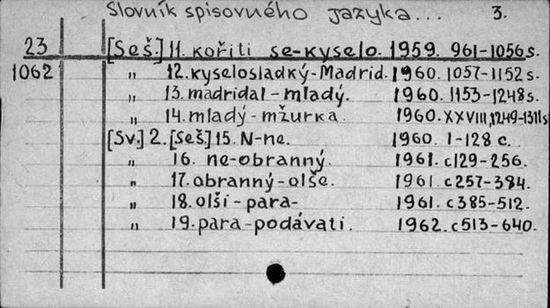 Slovník spisovného jazyka... 3.
23 [Seš.] 11. kořiti se-kyselo. 1959. 961-1056s.
1062 " 12. kyselosladký-Madrid. 1960. 1057-1152s.
" 13. madridal-mladý. 1960. 1153-1248s.
" 14. mladý-mžurka. 1960. XXVIII, 1249-1311s
[Sv.] 2. [Seš.] 15. N-ne. 1960. 1-128 c.
" 16. ne-obranný. 1961. c129-256.
" 17. obranný-olše. 1961. c257-384.
" 18. olší-para- 1961. c385-512.
" 19. para-podávati. 1962. c513-640.